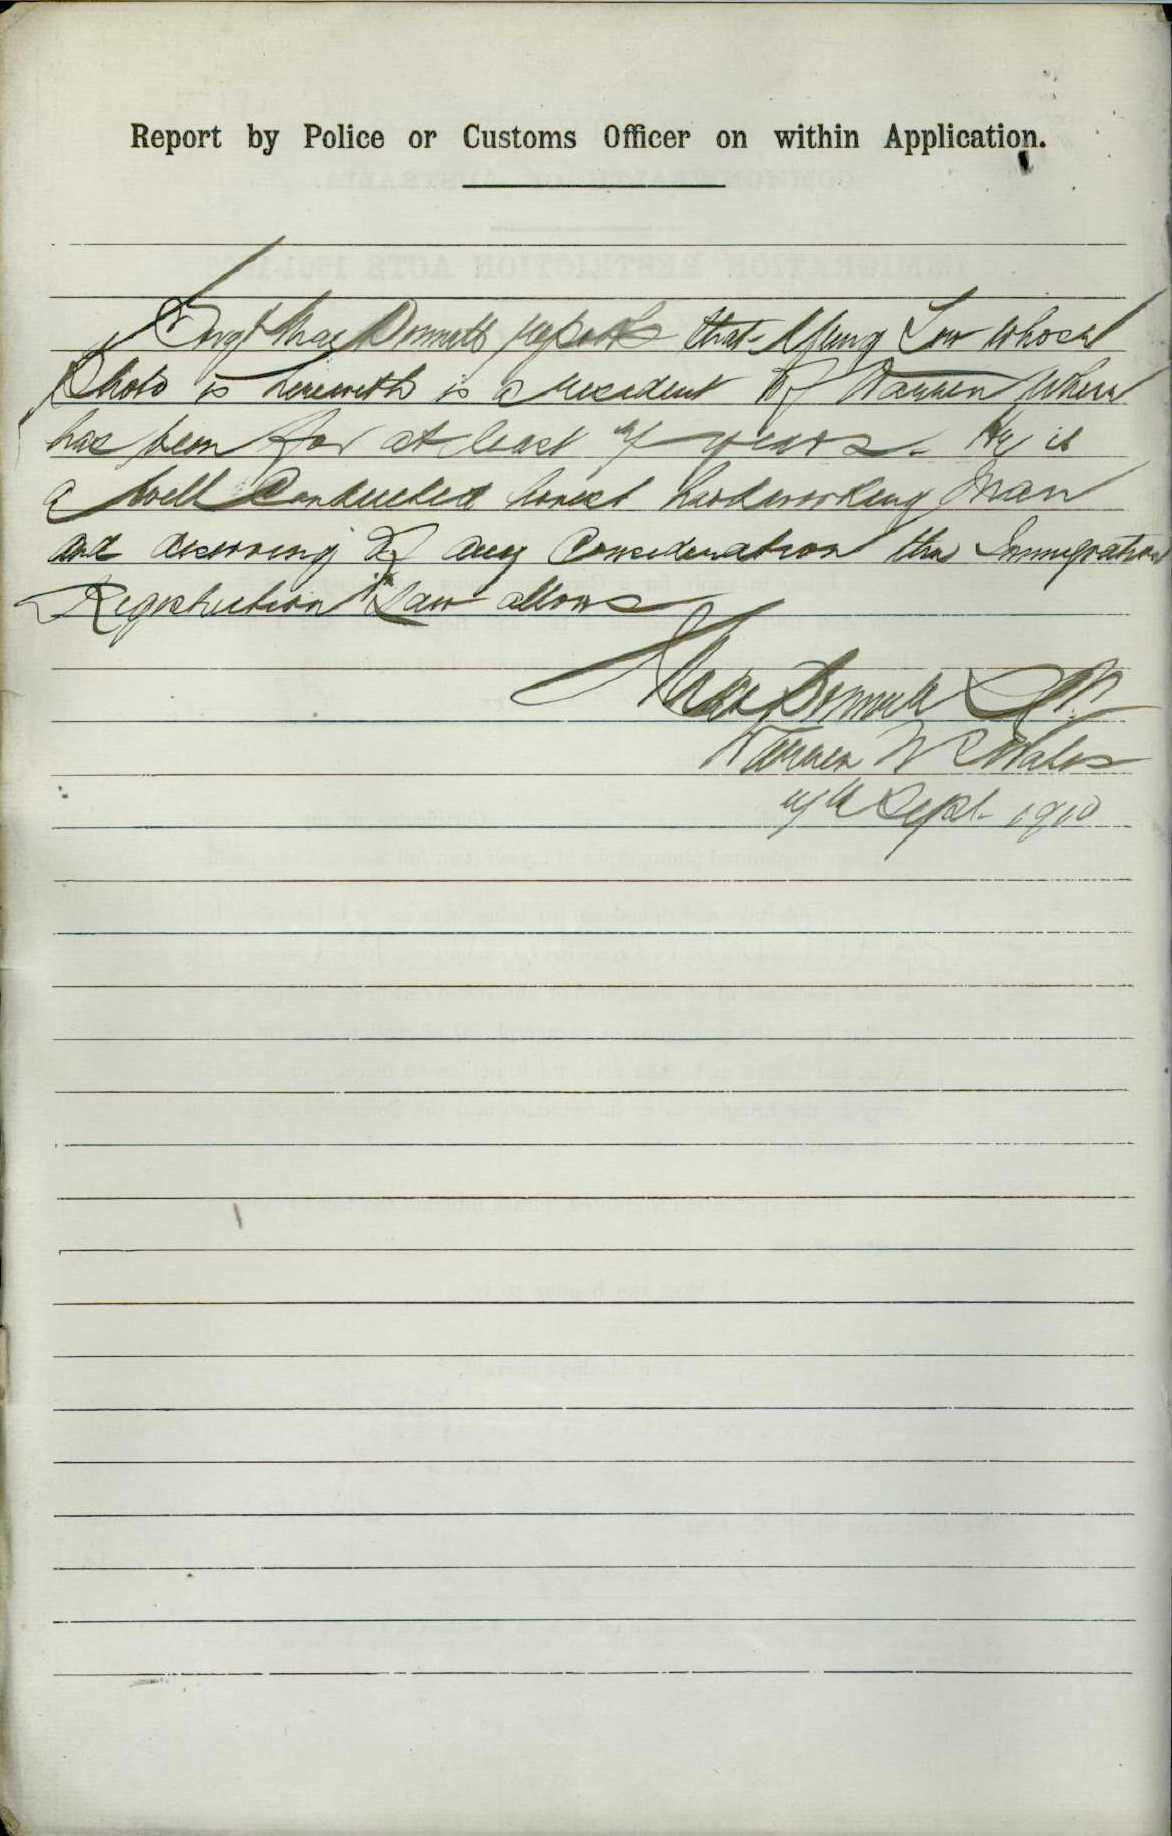 Report by Police or Customs Officer on within Application.
Sergt MacDonnell reports that Yung Low whose
Photo is herewith is a resident of Warren where
has been for at least 7 years. He is
a well Conducted honest hardworking Man
and deserving of any Consideration the Immigration
Law allows
MacDonnell
Warren N S Wales
Sept. 1910